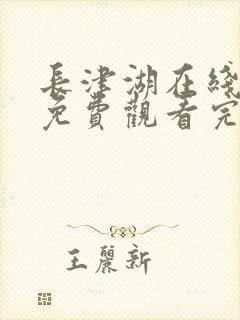 長津湖在綫
免費觀看完
王麗新